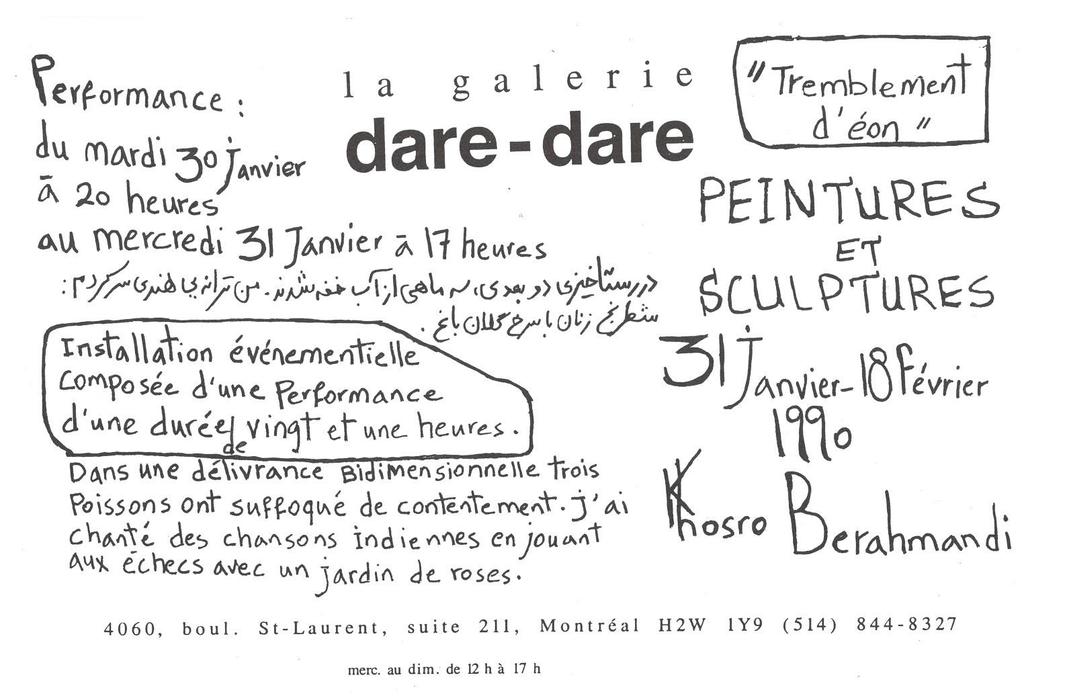 Performance :
du mardi 30 janvier
à 20 heures
au mercredi 31 Janvier à 17 heures
la galerie
dare-dare
"Tremblement
d'éon"
PEINTURES
ET
SCULPTURES
31 Janvier-18 février
1990
Khosro Berahmandi
در رستاخیزی دو بعدی، سه ماهی از آب خفه شدند. من ترانه‌ی هندی سر کردم:
شطرنج زنان با سرخ گلان باغ.
Installation événementielle
composée d'une Performance
d'une durée de vingt et une heures.
Dans une délivrance Bidimensionnelle trois
Poissons ont suffoqué de contentement. j'ai
chanté des chansons indiennes en jouant
aux échecs avec un jardin de roses.
4060, boul. St-Laurent, suite 211, Montréal H2W 1Y9 (514) 844-8327
merc. au dim. de 12 h à 17 h